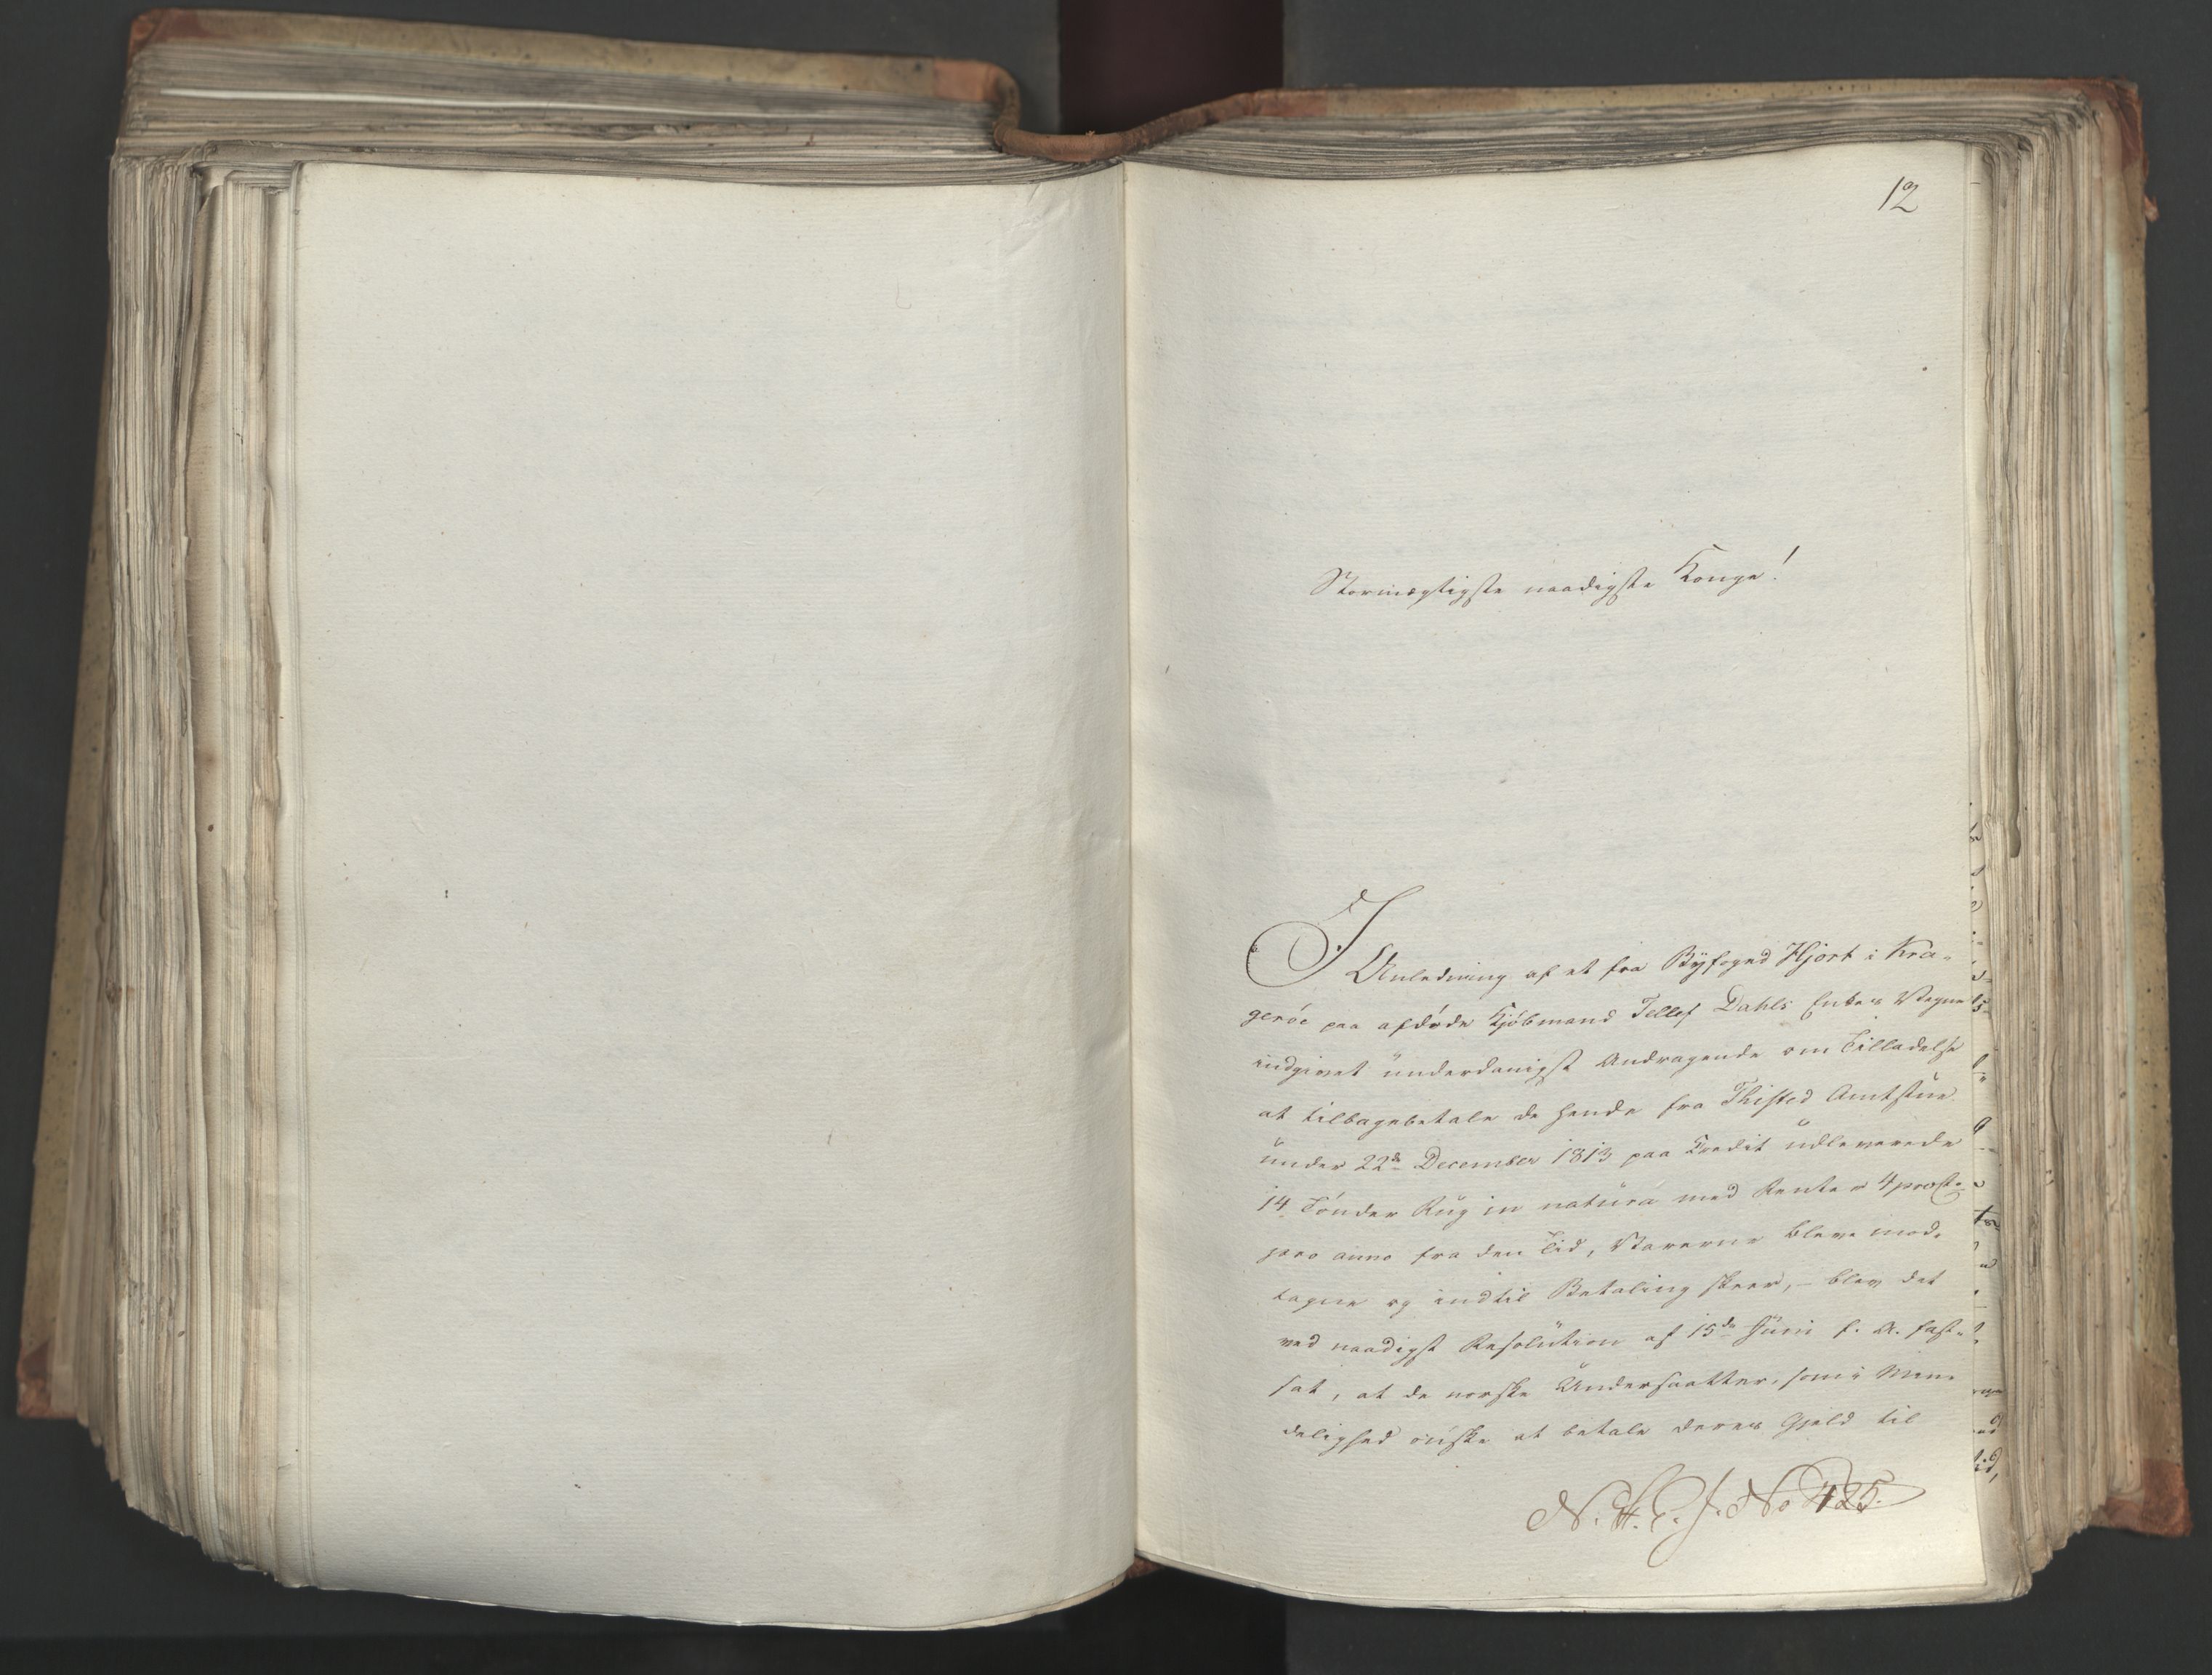 12
Stormægtigste naadigste Konge!
I Anledning af et fra Byfoged Hjort i Kra-
geröe paa afdöde Kjöbmand Tellef Dahls Enkes Vegne
indgivet underdanigst Andragende om Tilladelse
at tilbagebetale de hende fra Thisted Amtstue
under 22de December 1813 paa Credit udleverede
14 Tönder Rug in natura med Renter 4 procto
pro anno fra den Tid, Varerne bleve mod-
tagne og indtil Betaling skeer, - blev det
ved naadigst Resolution af 15de Juni f. A. fast-
sat, at de norske Undersaatter, som i Min-
delighed önske at betale deres Gjeld til
No 425.